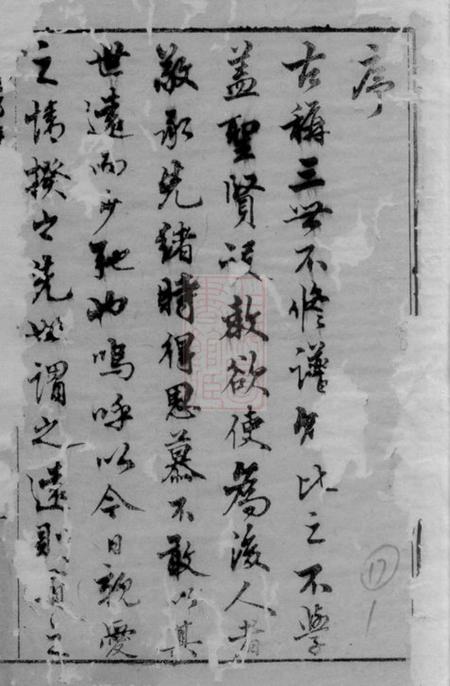 序
古稱三世不修譜者比之不學
蓋聖賢設教欲使爲後人者
敬承先緒時得思慕不敢以其
世遠而少弛也嗚呼以今日親愛
之情揆之先世謂之遠則
17